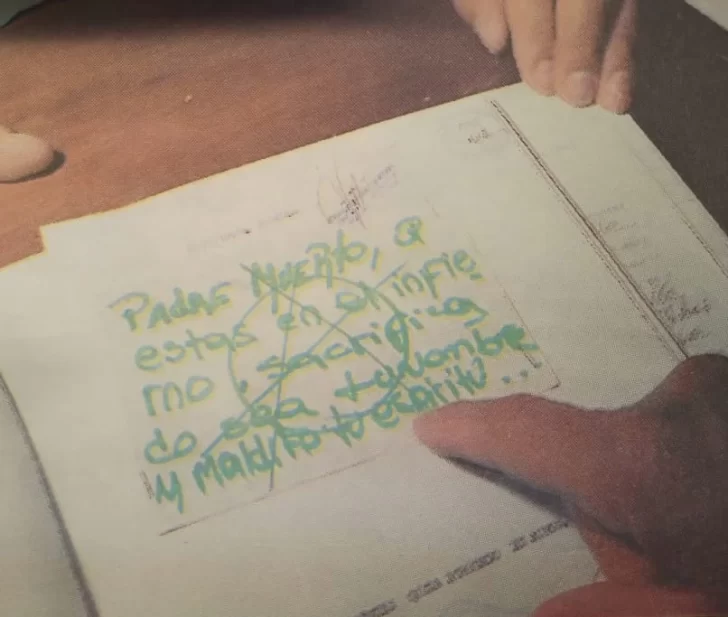 PADRE MUERTO, Q
estas en el infie
rno, sacrifica
do sea tu nombre
y maldito tu espiritu...